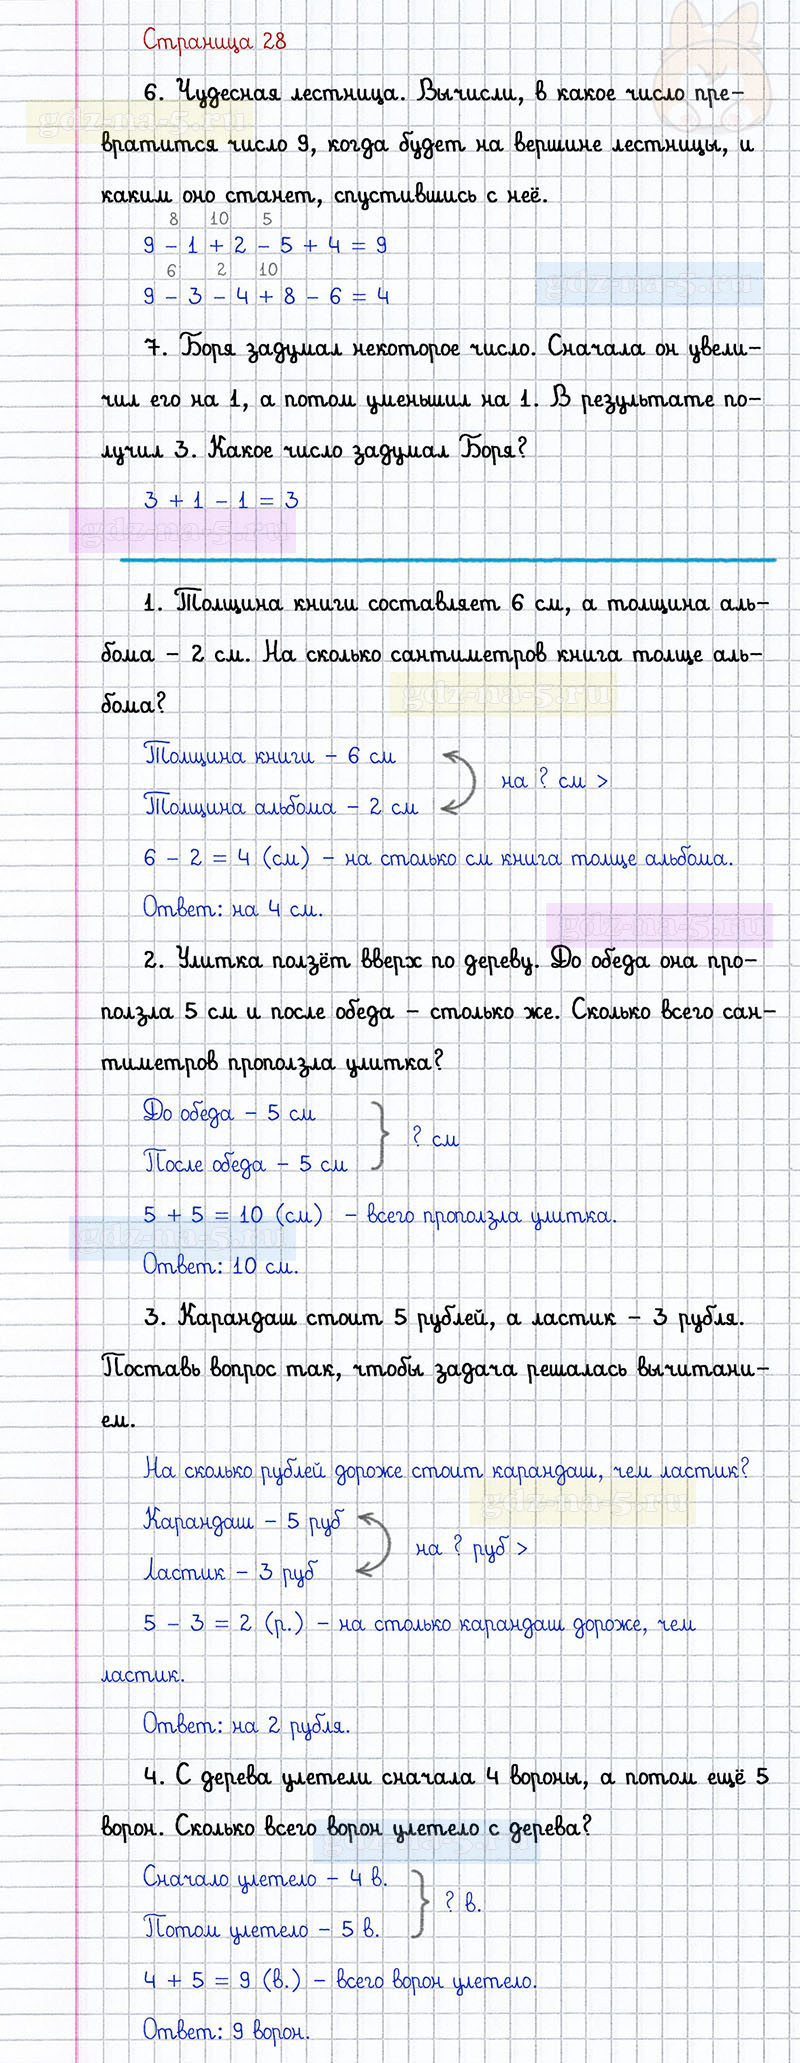 Страница 28
6. Чудесная лестница. Вычисли, в какое число пре-
gdz-na-5.ru
вратится число 9, когда будет на вершине лестницы, и
каким оно станет, спустившись с неё.
8 10 5
9 - 1 + 2 - 5 + 4 = 9
6 2 10
gdz-na-5.ru
9 - 3 - 4 + 8 - 6 = 4
7. Боря задумал некоторое число. Сначала он увели-
чил его на 1, а потом уменьшил на 1. В результате по-
лучил 3. Какое число задумал Боря?
3 + 1 - 1 = 3
gdz-na-5.ru
1. Толщина книги составляет 6 см, а толщина аль-
бома - 2 см. На сколько сантиметров книга толще аль-
gdz-na-5.ru
бома?
Толщина книги - 6 см
на ? см >
Толщина альбома - 2 см
6 - 2 = 4 (см) - на столько см книга толще альбома.
Ответ: на 4 см.
gdz-na-5.ru
2. Улитка ползёт вверх по дереву. До обеда она про-
ползла 5 см и после обеда - столько же. Сколько всего сан-
тиметров проползла улитка?
До обеда - 5 см
? см
После обеда - 5 см
5 + 5 = 10 (см) - всего проползла улитка.
gdz-na-5.ru
Ответ: 10 см.
3. Карандаш стоит 5 рублей, а ластик - 3 рубля.
Поставь вопрос так, чтобы задача решалась вычитани-
ем.
На сколько рублей дороже стоит карандаш, чем ластик?
gdz-na-5.ru
Карандаш - 5 руб
на ? руб >
Ластик - 3 руб
5 - 3 = 2 (р.) - на столько карандаш дороже, чем
ластик.
Ответ: на 2 рубля.
4. С дерева улетели сначала 4 вороны, а потом ещё 5
ворон. Сколько всего ворон улетело с дерева?
gdz-na-5.ru
Сначало улетело - 4 в.
? в.
Потом улетело - 5 в.
4 + 5 = 9 (в.) - всего ворон улетело.
Ответ: 9 ворон.